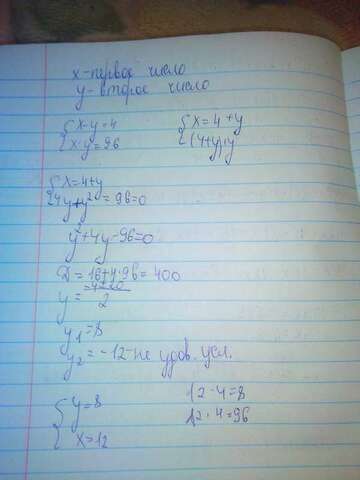 x-первое число
y-второе число
{x-y=4
x·y=96
{x=4+y
(4+y)·y
{x=4+y
4y+y²=96=0
y²+4y-96=0
D=16+4·96=400
y=-4±20/2
y₁=8
y₂=-12-не удов. усл.
{y=8
x=12
12-4=8
12·4=96